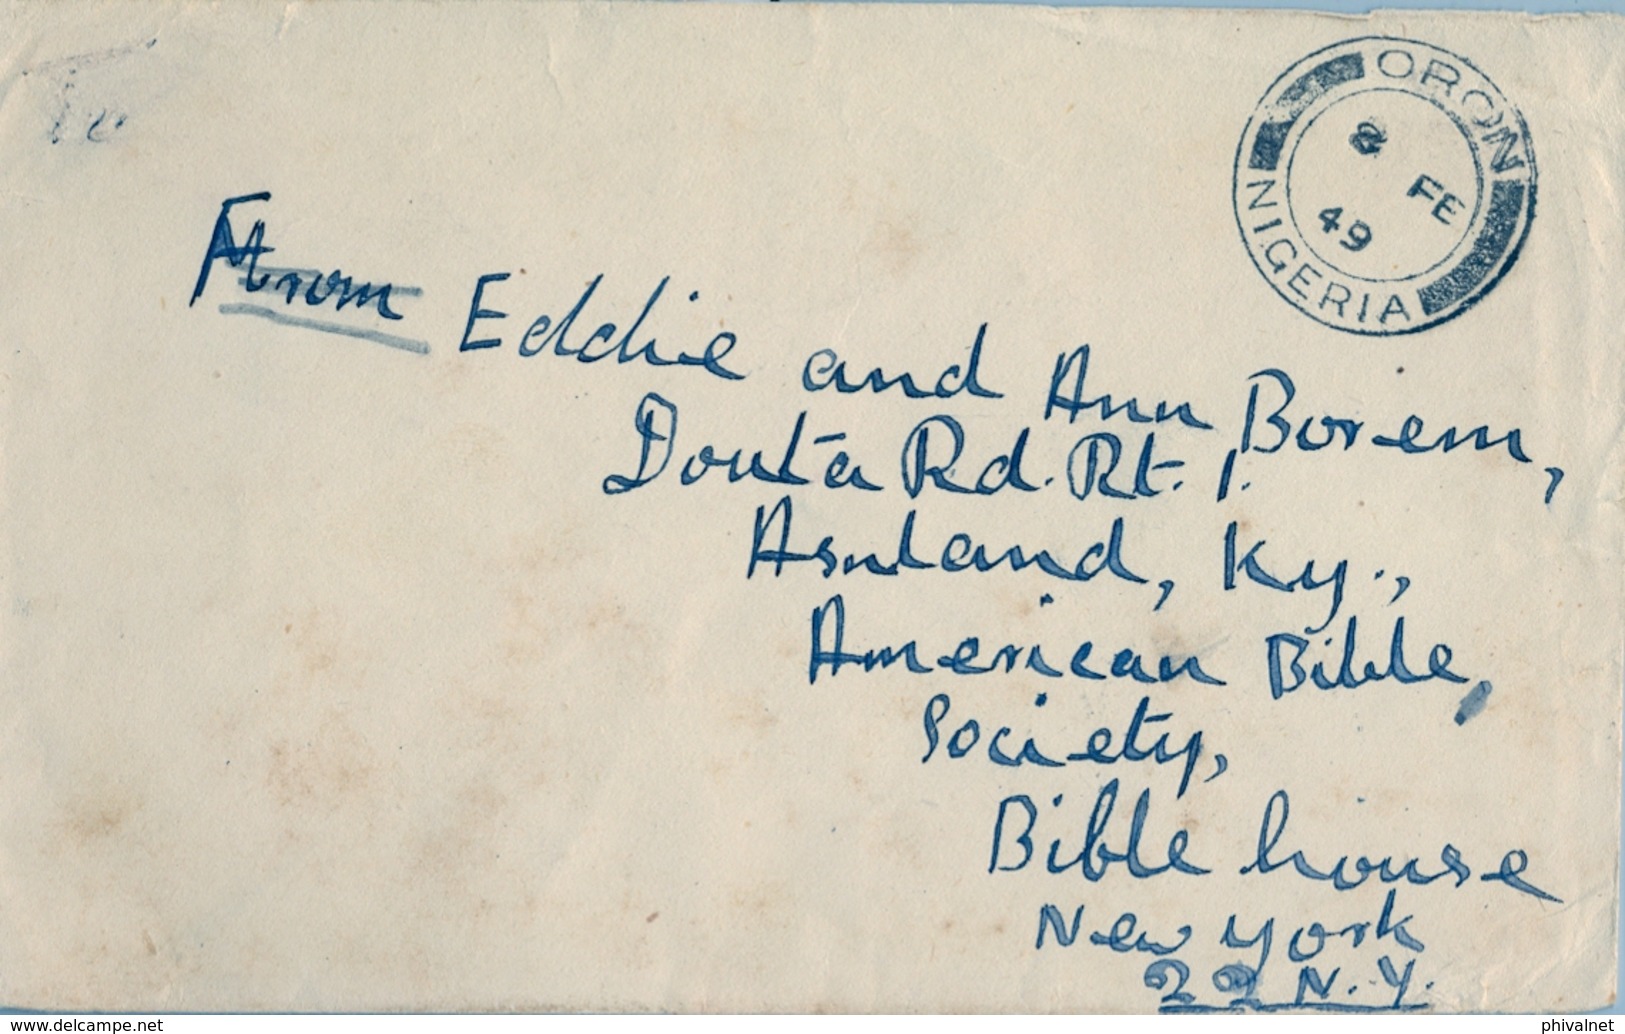 ORON
2 FE
49
NIGERIA
From Eddie and Ann Borem,
Donta Rd. Rt. 1.
Ashland, Ky.,
American Bible,
Society,
Bible house
New York
22 N.Y.
www.delcampe.net
phivalnet